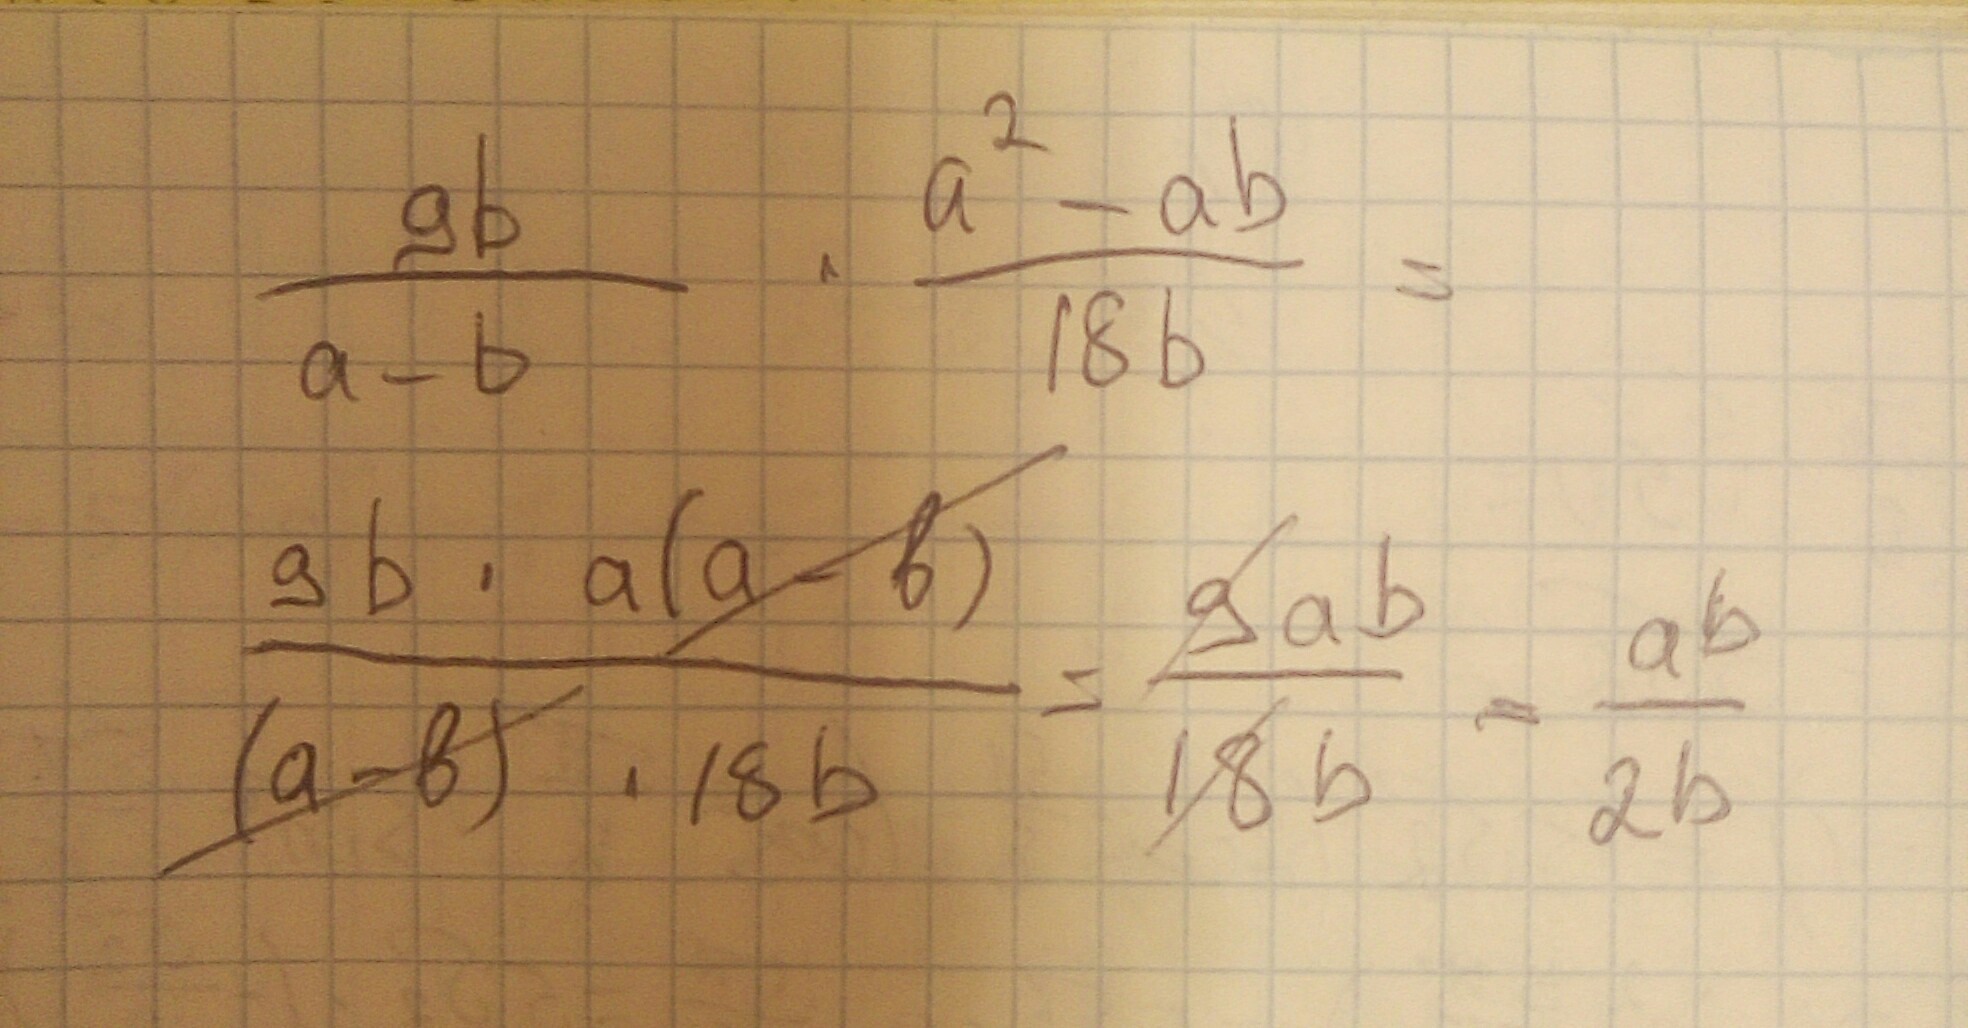 9b/(a-b) · (a²-ab)/18b =
(9b · a(a-b))/((a-b) · 18b) = 9ab/18b = ab/2b